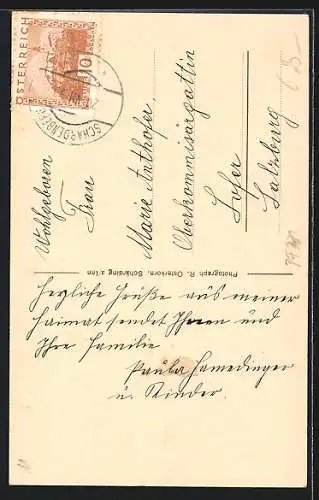 ÖSTERREICH
10
SCHARDENBERG
Wohlgeboren
Frau
Marie Anthofer
Oberkommisärgattin
Lofer
Salzburg
Photograph R. Osterkorn, Schärding a/Inn
Herzliche Grüße aus meiner
Heimat sendet Ihnen und
Ihre Familie
Paula Hamedinger
u. Kinder.